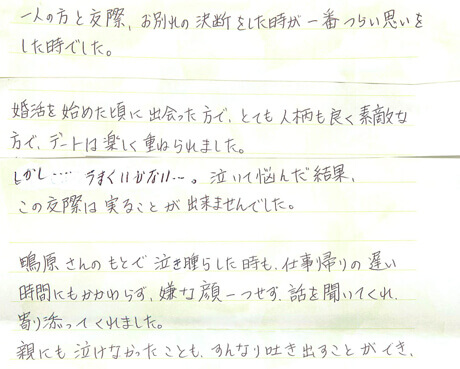 一人の方と交際、お別れの決断をした時が一番つらい思いを
した時でした。
婚活を始めた頃に出会った方で、とても人柄も良く素敵な
方で、デートは楽しく重ねられました。
しかし…. うまくいかない…。泣いて悩んだ結果、
この交際は実ることが出来ませんでした。
鴫原さんのもとで泣き腫らした時も、仕事帰りの遅い
時間にもかかわらず、嫌な顔一つせず、話を聞いてくれ、
寄り添ってくれました。
親にも泣けなかったことも、すんなり吐き出すことができ、